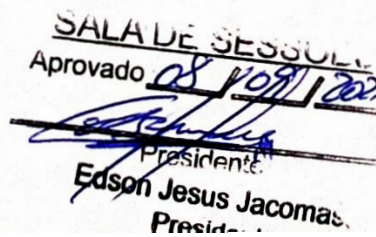 SALA DE SESSÕES
Aprovado 08 / 09 / 202
Presidente
Edson Jesus Jacomas
Presid